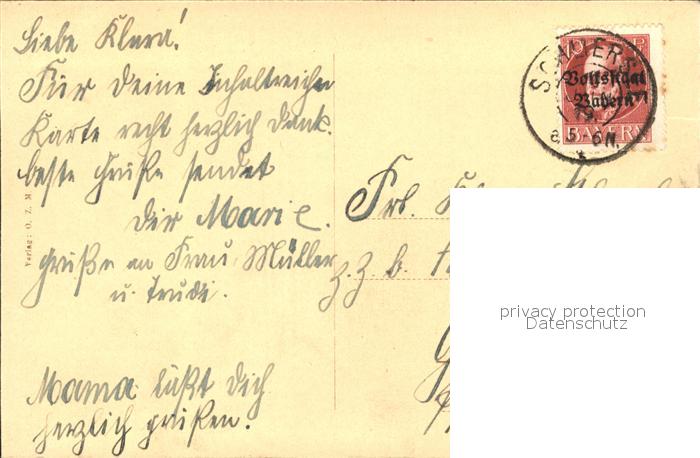 Liebe Klara!
Für Deine Inhaltreiche
Karte recht herzlich Dank.
beste Grüße sendet
Dir Marie.
Grüße an Frau Müller
u. Trudi.
Mama läßt Dich
herzlich grüßen.
Verlag: O. Z. M
10 P
Volksstaat
Bayern
BAYERN
8.5-6N.
Frl.
z. Z. b.
privacy protection
Datenschutz